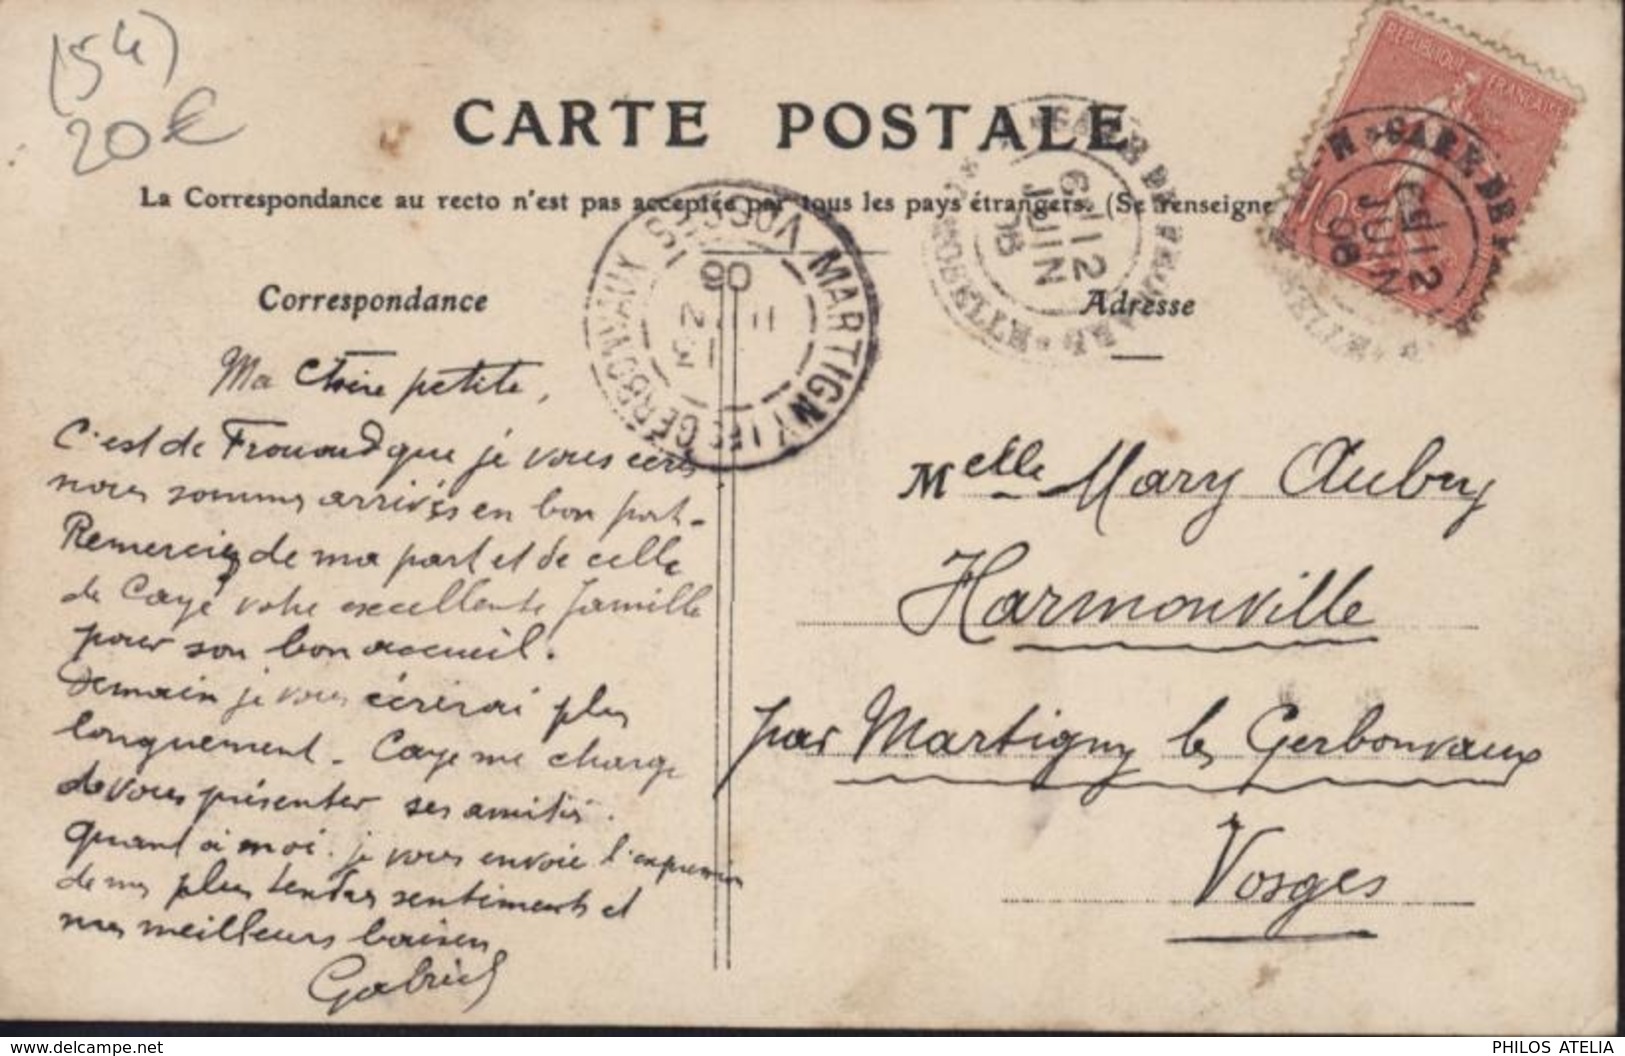 (54)
20€
CARTE POSTALE
La Correspondance au recto n'est pas acceptée par tous les pays étrangers. (Se renseigne
Correspondance
Adresse
RÉPUBLIQUE FRANÇAISE
GARE DE
6 12
JUIN
06
GARE DE
6 12
JUIN
06
MARTIGNY LES GERBONVAUX
VOSGES
06
Ma Chère petite,
C'est de Frouard que je vous écris
nous sommes arrivés en bon port-
Remerciez de ma part et de celle
de Cayé votre excellente famille
pour son bon accueil.
Demain je vous écrirai plus
longuement. Caye me charge
de vous présenter ses amitiés.
Quant à moi. je vous envoie l'expression
de mes plus tendres sentiments et
mes meilleurs baisers
Gabriel
Melle Mary Aubry
Harmonville
par Martigny les Gerbonvaux
Vosges
www.delcampe.net
PHILOS ATELIA